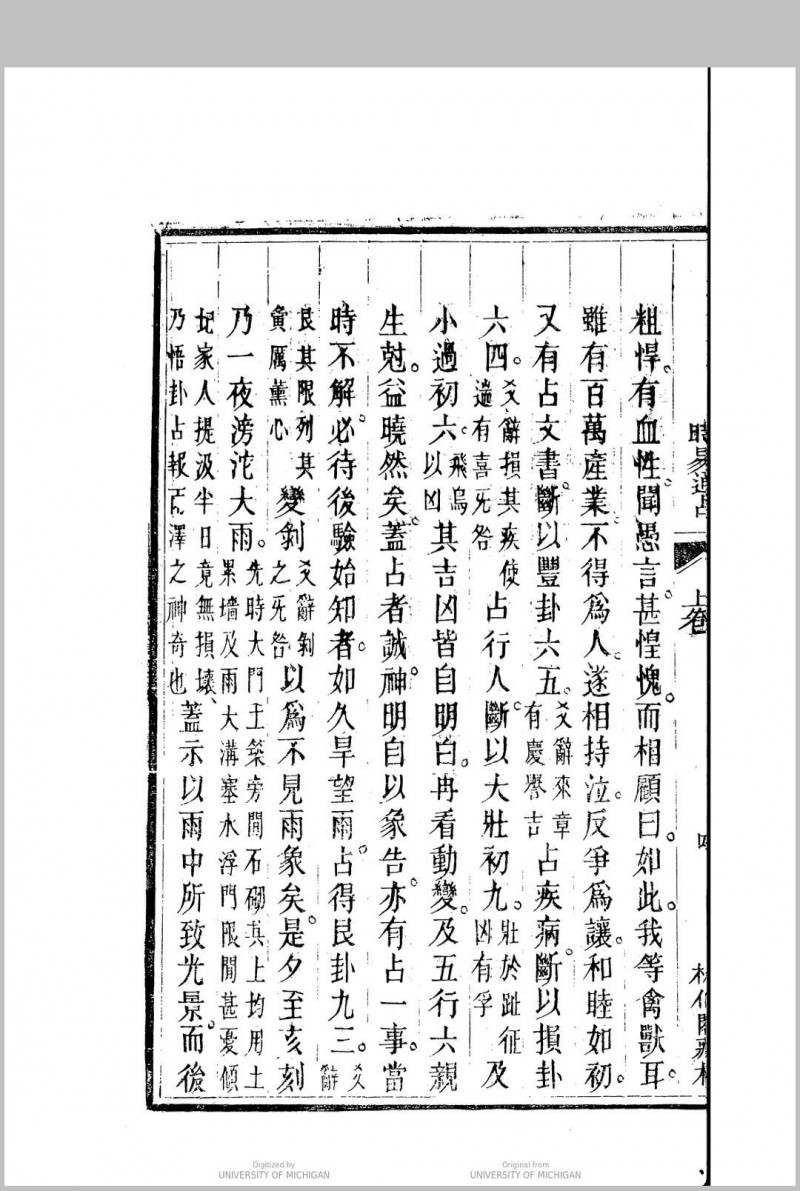 時易
上卷
粗悍。有血性。聞愚言。甚惶愧。而相顧曰。如此。我等禽獸耳。
雖有百萬產業。不得爲人。遂相持泣。反爭爲讓。和睦如初。
又有占文書。斷以豐卦六五。爻辭來章有慶譽吉占疾病。斷以損卦
六四。爻辭損其疾使遄有喜无咎占行人。斷以大壯初九。壯於趾征凶有孚及
小過初六。飛鳥以凶其吉凶皆自明白。再看動變。及五行六親
生尅。益曉然矣。蓋占者誠。神明自以象告。亦有占一事。當
時不解。必待後驗始知者。如久旱望雨。占得艮卦九三。爻辭
艮其限列其夤厲薰心變剝爻辭剝之无咎以爲不見雨象矣。是夕至亥刻
乃一夜滂沱大雨。先時大門土築旁間石砌其上均用土累墻及雨大溝塞水浮門限閒甚憂傾
圮家人提汲半日竟無損壞、乃悟卦占報
澤之神奇也蓋示以雨中所致光景。而後
Digitized by
UNIVERSITY OF MICHIGAN
Original from
UNIVERSITY OF MICHIGAN